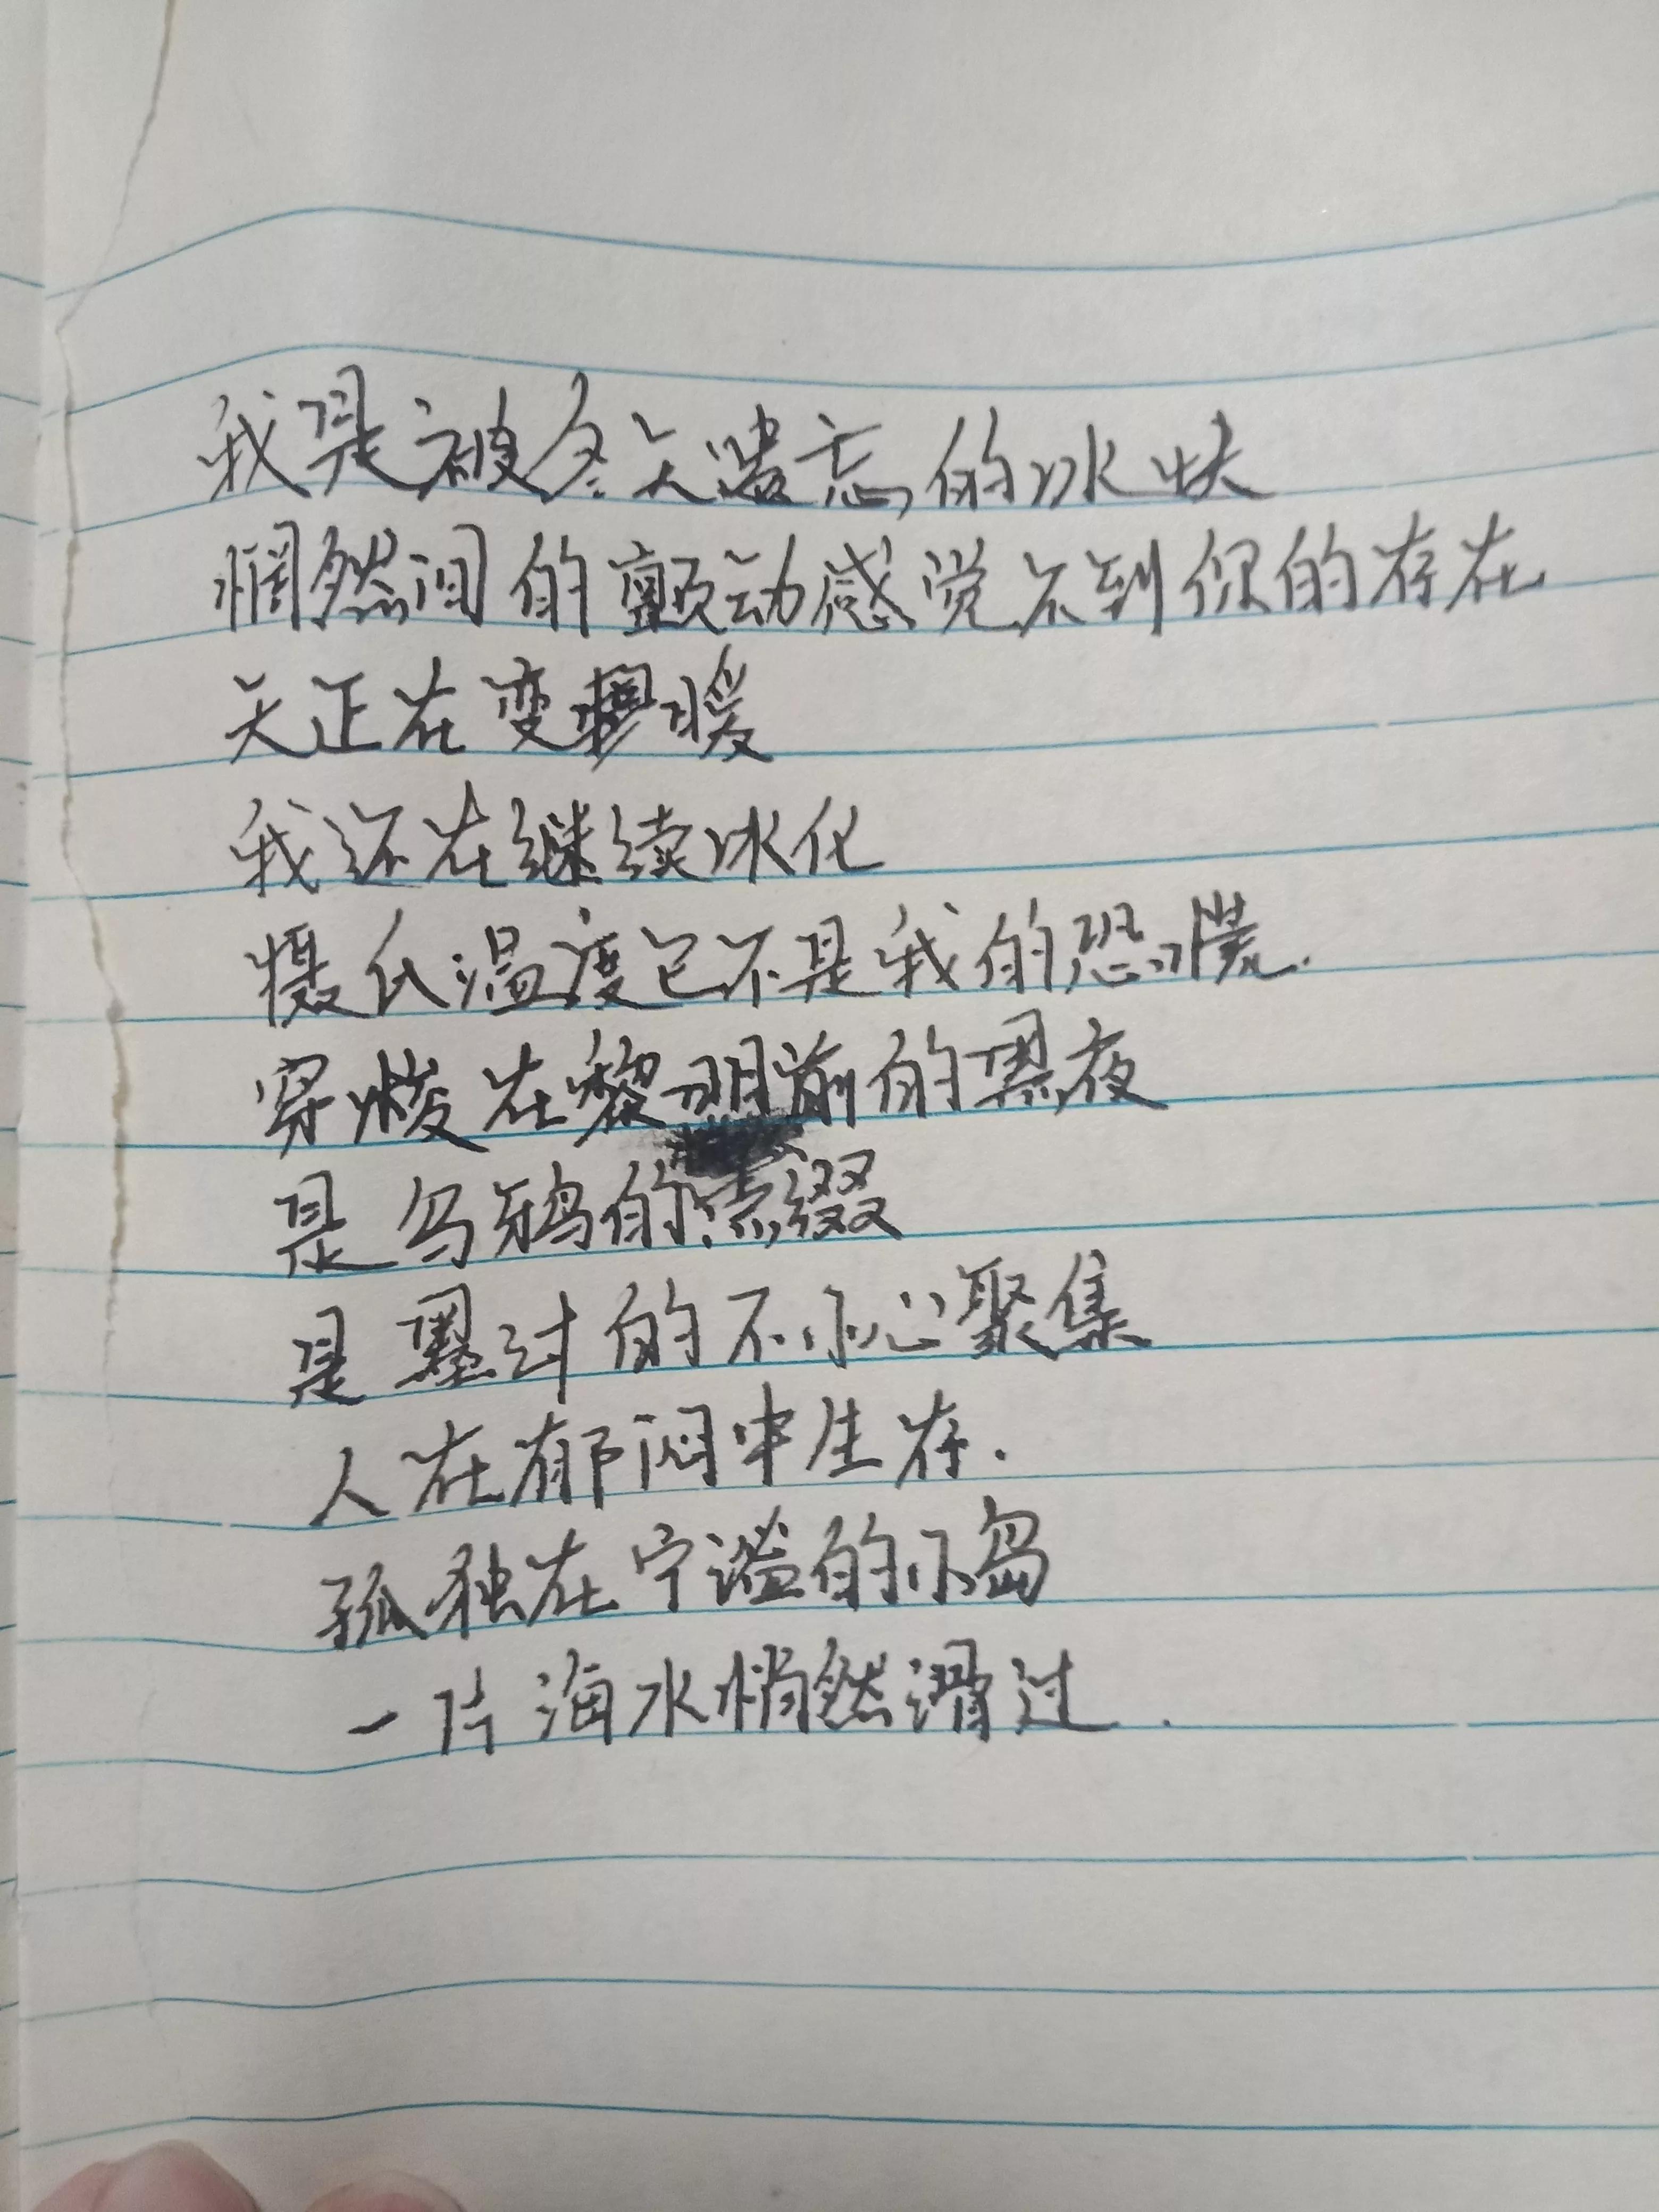 我是被冬天遗忘的冰块
惘然间的颤动感觉不到你的存在
天正在变暖
我还在继续冰化
摄氏温度已不是我的恐慌.
穿梭在黎明前的黑夜
是乌鸦的点缀
是墨汁的不小心聚集
人在郁闷中生存.
孤独在宁谧的小岛
一片海水悄然滑过.